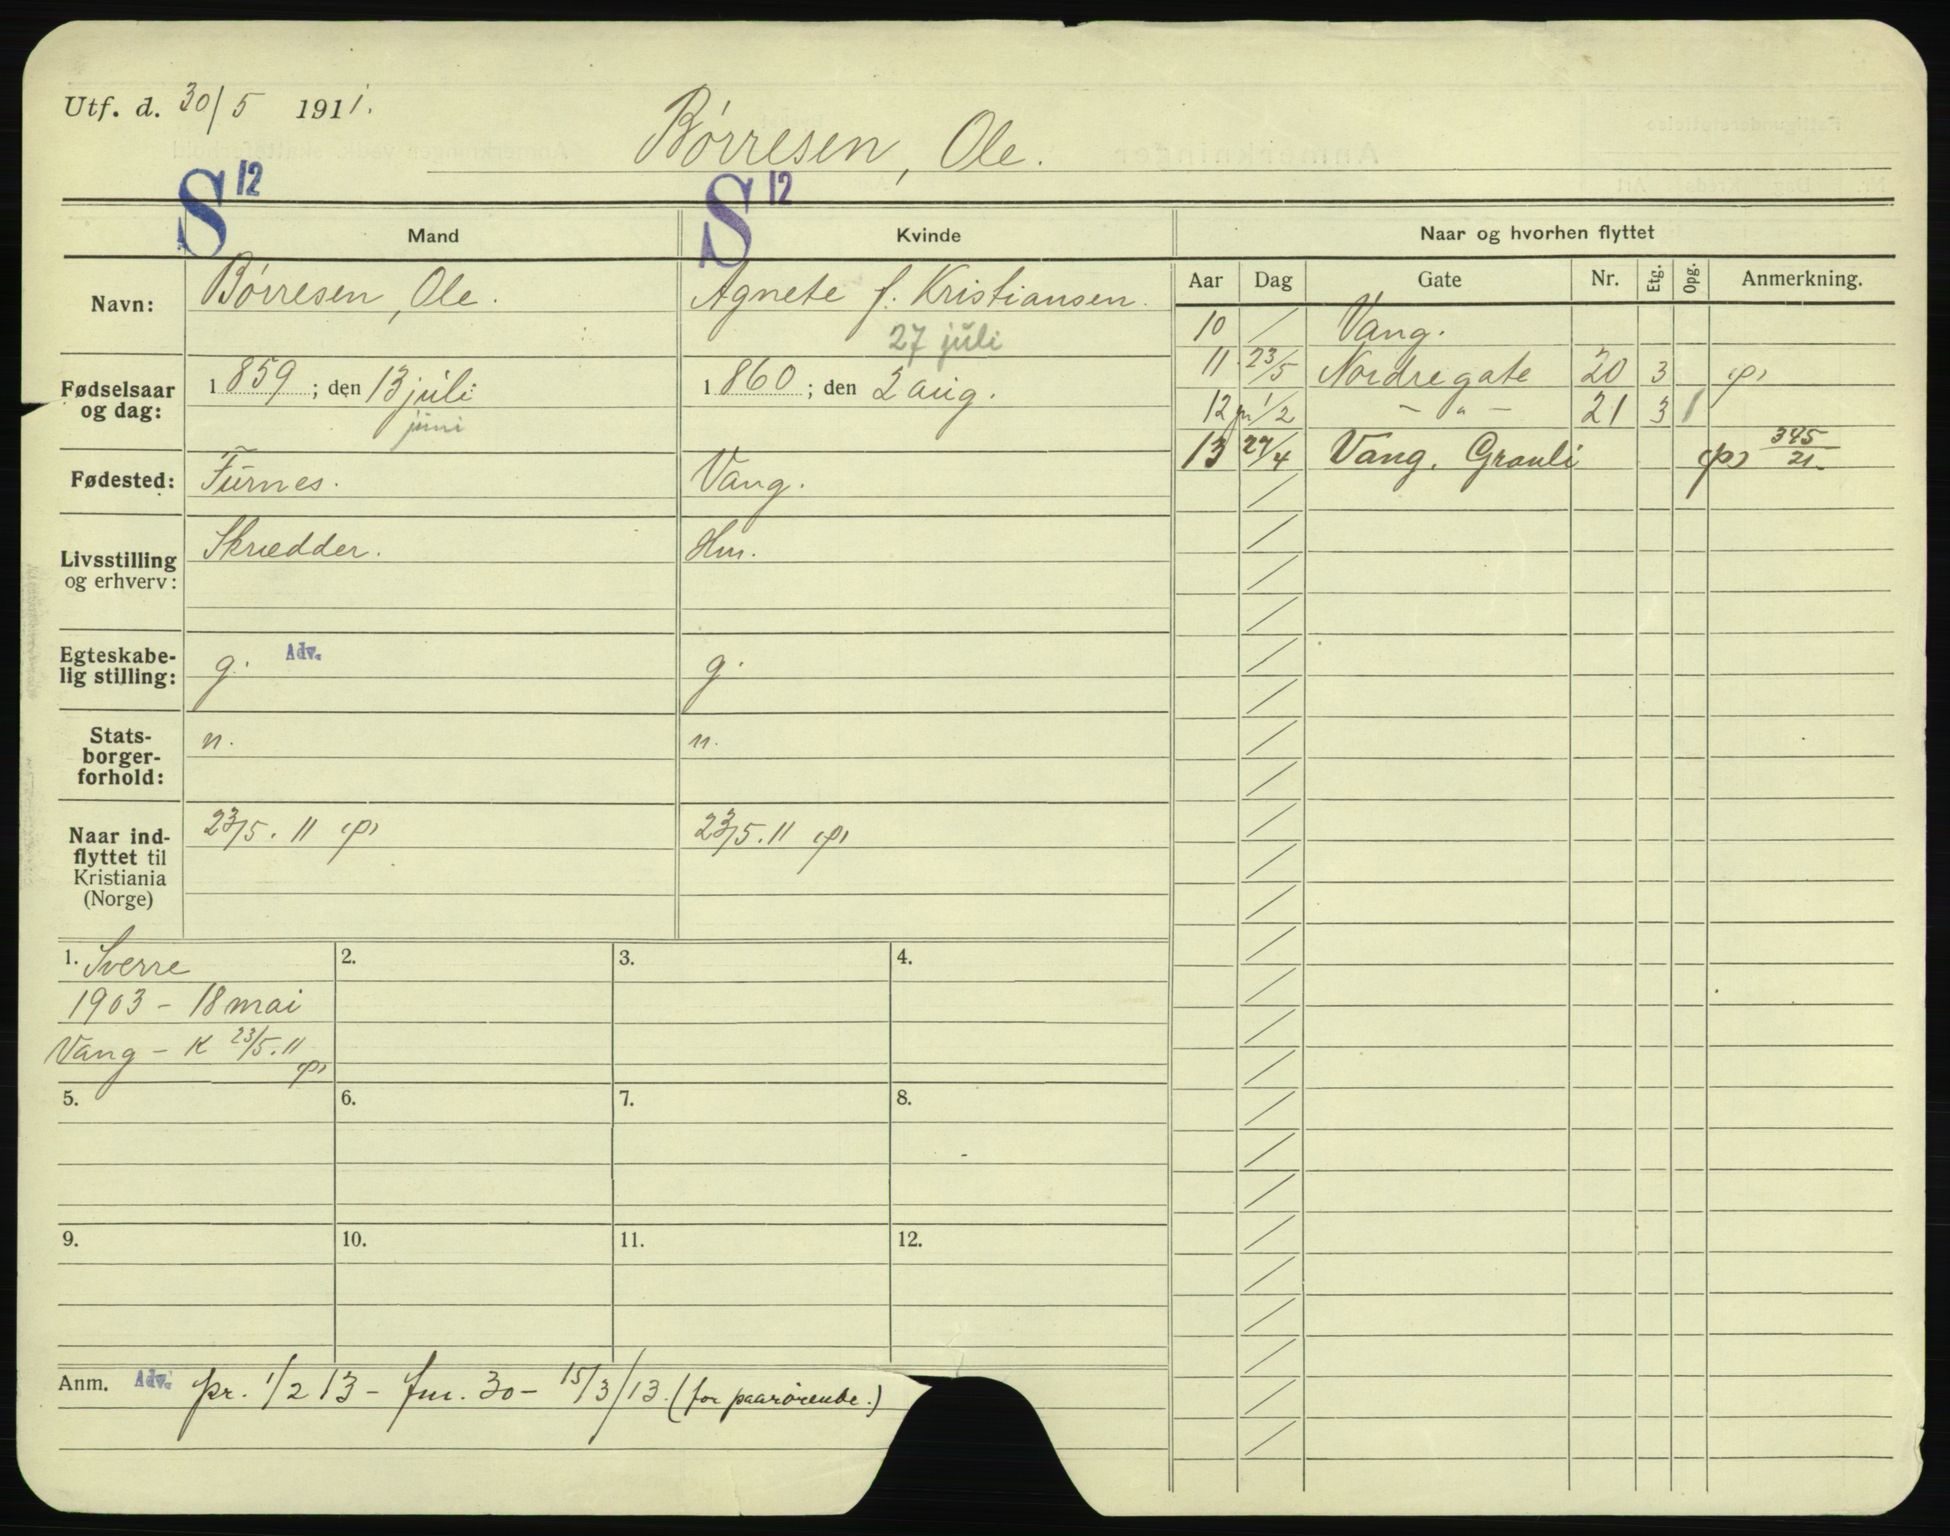 Utf. d. 30/5 1911.
Børresen, Ole.
S 12
S 12
Mand
Kvinde
Naar og hvorhen flyttet
Aar Dag Gate Nr. Etg. Opg. Anmerkning.
Navn: Børresen, Ole. Agnete f. Kristiansen.
27 juli
Fødselsaar og dag: 1859; den 13 juli 1860; den 2 aug.
juni
Fødested: Furnes. Vang.
Livsstilling og erhverv: Skrædder. Hm.
Egteskabe-
lig stilling: g. Adv. g.
Stats-
borger-
forhold: n. n.
Naar ind-
flyttet til
Kristiania
(Norge) 23/5. 11 (p) 23/5. 11 (p)
10 / Vang.
11 23/5 Nordregate 20 3 (p)
12 pr 1/2 – " – 21 3 1
13 24/4 Vang. Granli (p) 345/21
1. Sverre
1903 – 18 mai
Vang – K 23/5. 11
(p)
2.
3.
4.
5.
6.
7.
8.
9.
10.
11.
12.
Anm. Adv. pr. 1/2 13 – fm. 30 – 15/3/13. (for paarørende.)